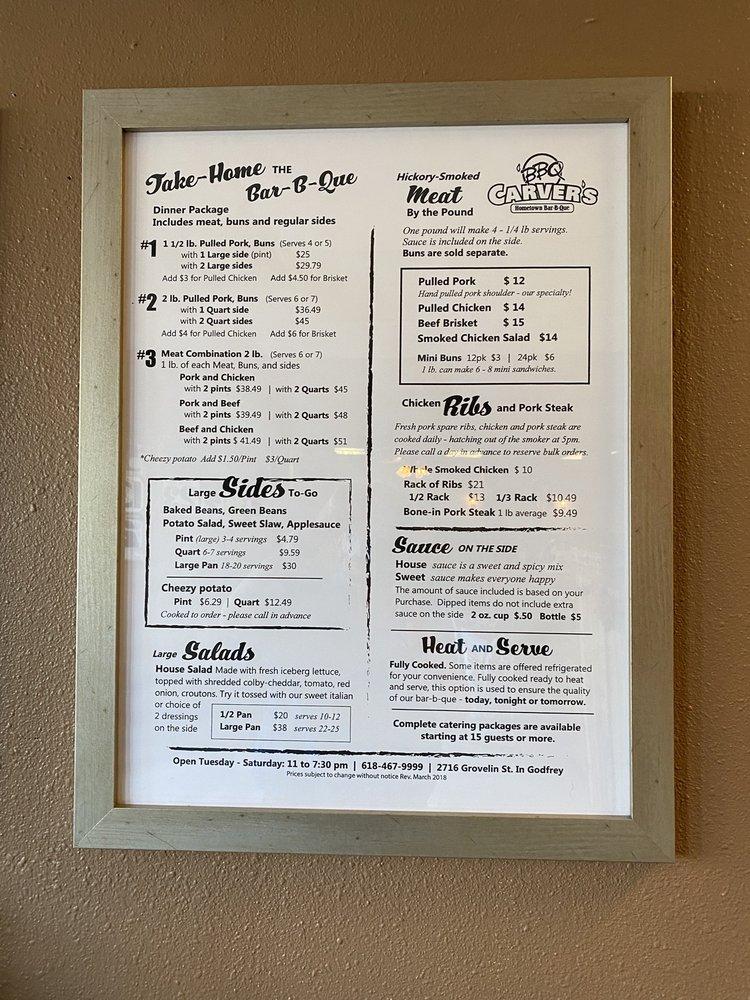 Take-Home THE
Bar-B-Que
Dinner Package
Includes meat, buns and regular sides
#1 1 1/2 lb. Pulled Pork, Buns (Serves 4 or 5)
with 1 Large side (pint) $25
with 2 Large sides $29.79
Add $3 for Pulled Chicken Add $4.50 for Brisket
#2 2 lb. Pulled Pork, Buns (Serves 6 or 7)
with 1 Quart side $36.49
with 2 Quart sides $45
Add $4 for Pulled Chicken Add $6 for Brisket
#3 Meat Combination 2 lb. (Serves 6 or 7)
1 lb. of each Meat, Buns, and sides
Pork and Chicken
with 2 pints $38.49 | with 2 Quarts $45
Pork and Beef
with 2 pints $39.49 | with 2 Quarts $48
Beef and Chicken
with 2 pints $ 41.49 | with 2 Quarts $51
*Cheezy potato Add $1.50/Pint $3/Quart
Large Sides To-Go
Baked Beans, Green Beans
Potato Salad, Sweet Slaw, Applesauce
Pint (large) 3-4 servings $4.79
Quart 6-7 servings $9.59
Large Pan 18-20 servings $30
Cheezy potato
Pint $6.29 | Quart $12.49
Cooked to order - please call in advance
Large Salads
House Salad Made with fresh iceberg lettuce,
topped with shredded colby-cheddar, tomato, red
onion, croutons. Try it tossed with our sweet italian
or choice of
2 dressings
on the side
1/2 Pan $20 serves 10-12
Large Pan $38 serves 22-25
Hickory-Smoked
Meat
By the Pound
BBQ
CARVER'S
Hometown Bar-B-Que
One pound will make 4 - 1/4 lb servings.
Sauce is included on the side.
Buns are sold separate.
Pulled Pork $ 12
Hand pulled pork shoulder - our specialty!
Pulled Chicken $ 14
Beef Brisket $ 15
Smoked Chicken Salad $14
Mini Buns 12pk $3 | 24pk $6
1 lb. can make 6 - 8 mini sandwiches.
Chicken Ribs and Pork Steak
Fresh pork spare ribs, chicken and pork steak are
cooked daily - hatching out of the smoker at 5pm.
Please call a day in advance to reserve bulk orders.
Whole Smoked Chicken $ 10
Rack of Ribs $21
1/2 Rack $13 1/3 Rack $10.49
Bone-in Pork Steak 1 lb average $9.49
Sauce ON THE SIDE
House sauce is a sweet and spicy mix
Sweet sauce makes everyone happy
The amount of sauce included is based on your
Purchase. Dipped items do not include extra
sauce on the side 2 oz. cup $.50 Bottle $5
Heat AND Serve
Fully Cooked. Some items are offered refrigerated
for your convenience. Fully cooked ready to heat
and serve, this option is used to ensure the quality
of our bar-b-que - today, tonight or tomorrow.
Complete catering packages are available
starting at 15 guests or more.
Open Tuesday - Saturday: 11 to 7:30 pm | 618-467-9999 | 2716 Grovelin St. In Godfrey
Prices subject to change without notice Rev. March 2018